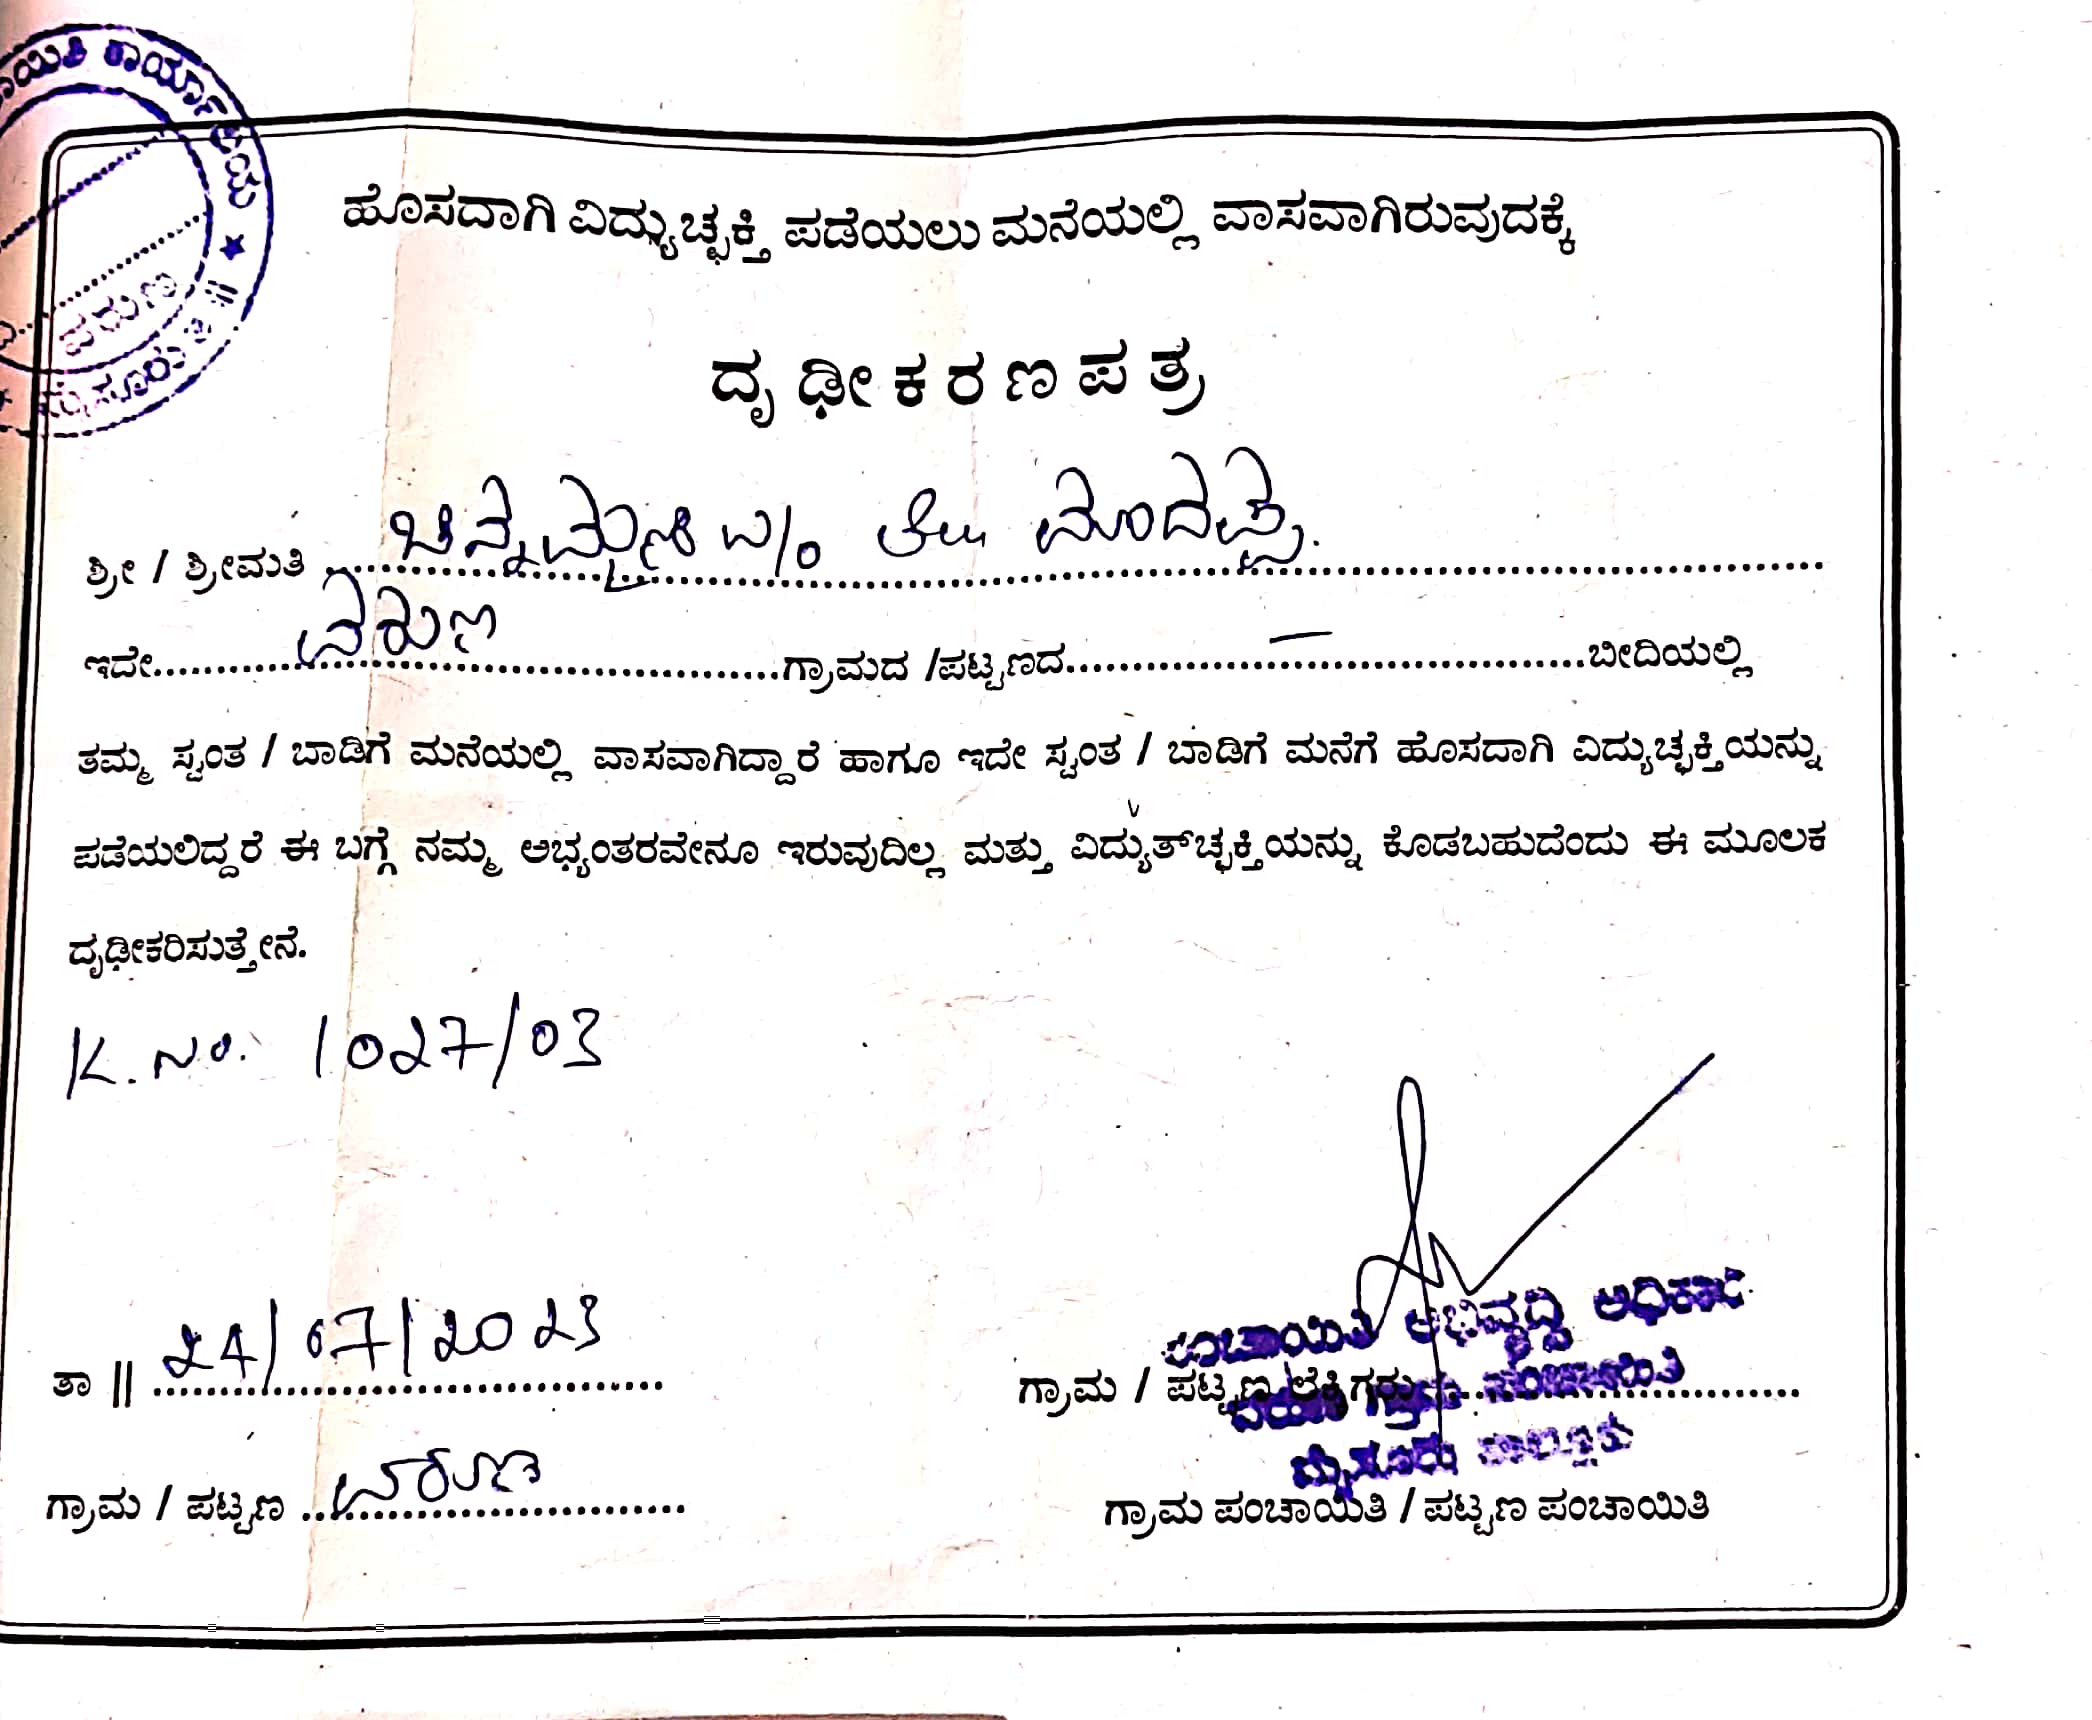 ಹೊಸದಾಗಿ ವಿದ್ಯುಚ್ಛಕ್ತಿ ಪಡೆಯಲು ಮನೆಯಲ್ಲಿ ವಾಸವಾಗಿರುವುದಕ್ಕೆ
ದೃಢೀಕರಣಪತ್ರ
ಶ್ರೀ / ಶ್ರೀಮತಿ ಚಿನ್ನಮ್ಮಣಿ W/o
ಇದೇ ವರುಣ ಗ್ರಾಮದ /ಪಟ್ಟಣದ — ಬೀದಿಯಲ್ಲಿ
ತಮ್ಮ ಸ್ವಂತ / ಬಾಡಿಗೆ ಮನೆಯಲ್ಲಿ ವಾಸವಾಗಿದ್ದಾರೆ ಹಾಗೂ ಇದೇ ಸ್ವಂತ / ಬಾಡಿಗೆ ಮನೆಗೆ ಹೊಸದಾಗಿ ವಿದ್ಯುಚ್ಛಕ್ತಿಯನ್ನು
ಪಡೆಯಲಿದ್ದರೆ ಈ ಬಗ್ಗೆ ನಮ್ಮ ಅಭ್ಯಂತರವೇನೂ ಇರುವುದಿಲ್ಲ ಮತ್ತು ವಿದ್ಯುತ್‌ಚ್ಛಕ್ತಿಯನ್ನು ಕೊಡಬಹುದೆಂದು ಈ ಮೂಲಕ
ದೃಢೀಕರಿಸುತ್ತೇನೆ.
K. No. 1027/03
ಪಂಚಾಯಿತಿ ಅಭಿವೃದ್ಧಿ ಅಧಿಕಾರಿ
ತಾ || 24/07/2023
ಗ್ರಾಮ / ಪಟ್ಟಣ ಲೆಕ್ಕಿಗರು
ಮೈಸೂರು ತಾಲ್ಲೂಕು
ಗ್ರಾಮ / ಪಟ್ಟಣ ವರುಣ
ಗ್ರಾಮ ಪಂಚಾಯಿತಿ / ಪಟ್ಟಣ ಪಂಚಾಯಿತಿ